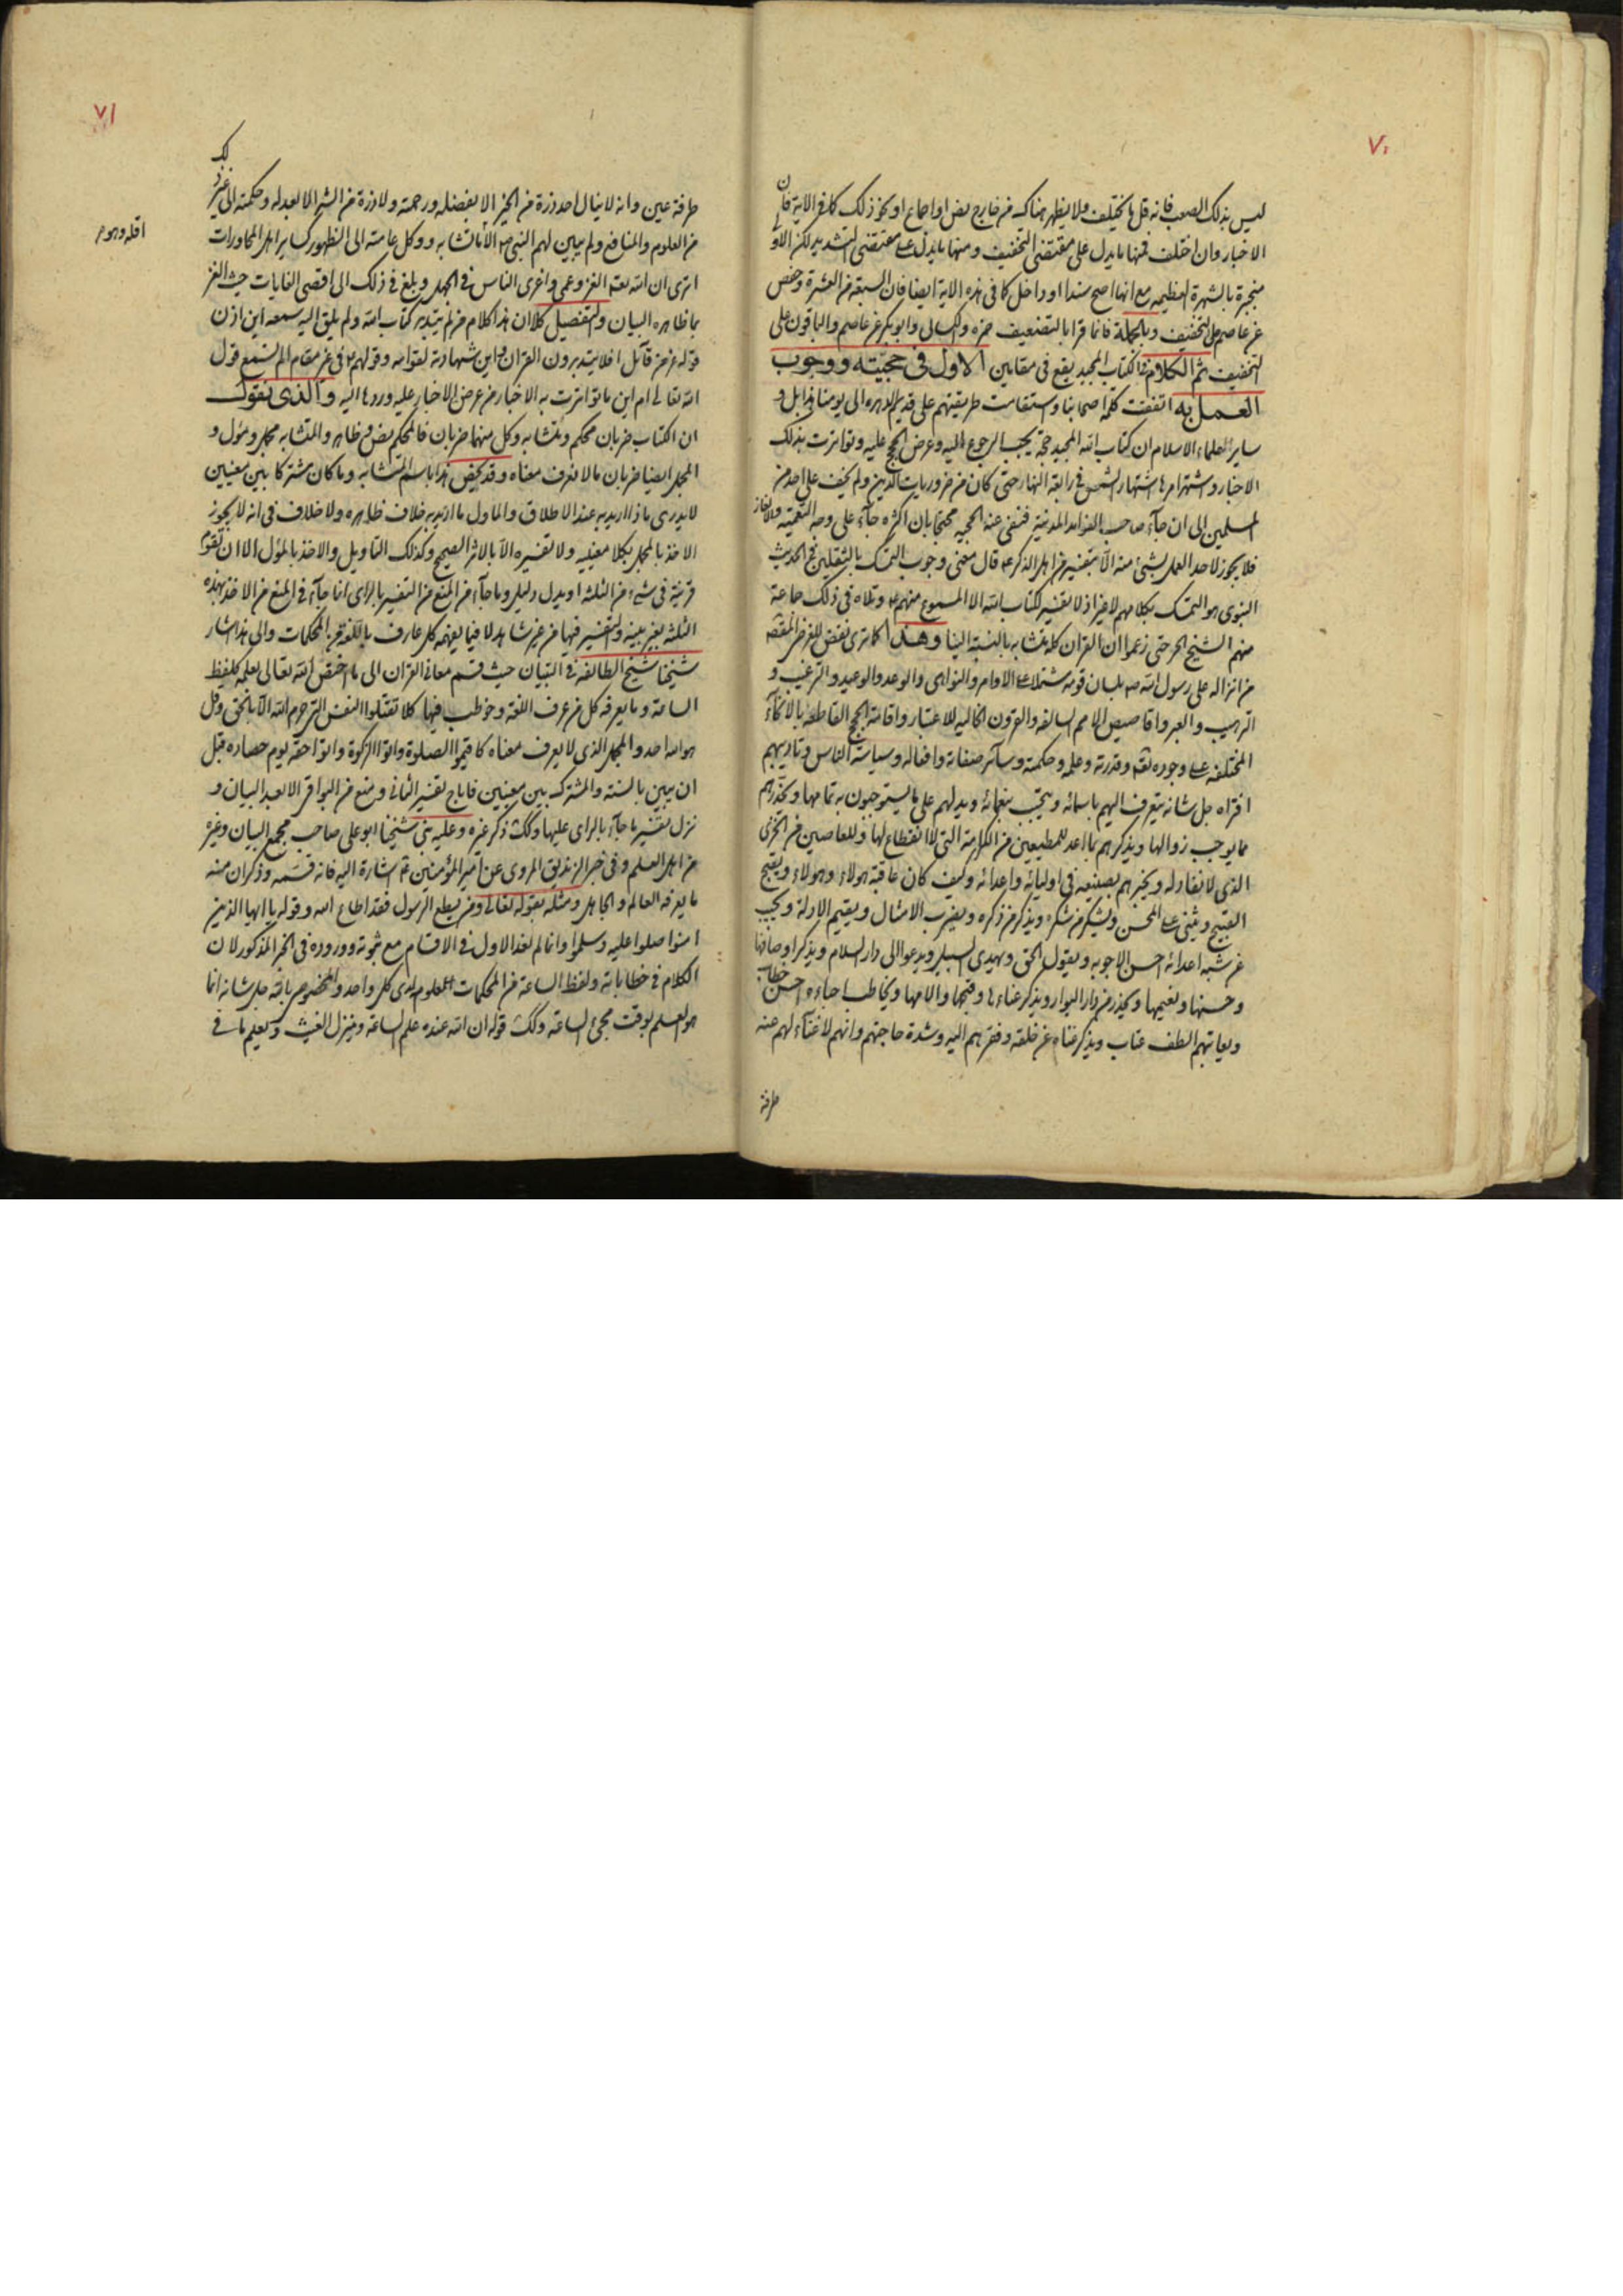 ٧٠
ليس بذلك الصعب فانه قل ما يختلف ولا يظهر هناك من خارج نص او اجماع او نحو ذلك كما في الاية فان
الاخبار وان اختلف فمنها ما يدل على مقتضى التخفيف ومنها ما يدل على مقتضى التشديد لكن الاول
منجبرة بالشهرة العظيمه مع انها اصح سندا او داخل كما في هذه الاية ايضا فان السبعة من العشرة وحفص
عن عاصم على التخفيف وبالجملة فانما قرا بالتضعيف حمزه والكسائى وابوبكر عن عاصم والباقون على
التخفيف ثم الكلام في الكتاب المجيد يقع في مقامين الاول في حجيته ووجوب
العمل به اتفقت كلمة اصحابنا واستقامت طريقتهم على قديم الدهر الى يومنا هذا بل و
ساير علماء الاسلام ان كتاب الله المجيد حجة يجب الرجوع اليه وعرض الحجج عليه وتواترت بذلك
الاخبار واشتهر امرها اشتهار الشمس في رابعة النهار حتى كان من ضروريات الدين ولم يخف على احد من
المسلمين الى ان جاء صاحب الفوائد المدنية فنفى عنه الحجيه محتجا بان اكثره جاء على وجه التعمية والالغاز
فلا يجوز لاحد العمل بشئ منه الا بتفسير من اهل الذكر ع قال معنى وجوب التمسك بالثقلين في الحديث
النبوى هو التمسك بكلامهم لا غير اذ لا تفسير لكتاب الله الا المسموع منهم ع وتلاه في ذلك جماعة
منهم الشيخ الحر حتى زعموا ان القران كله متشابه بالنسبة الينا وهذا كما ترى نقض للغرض المقصود
من انزاله على رسول الله ص بلسان قومه مشتملا على الاوامر والنواهى والوعد والوعيد والترغيب و
الترهيب والعبر واقاصيص الامم السالفه والقرون الخاليه للاعتبار واقامة الحجج القاطعة بالانحاء
المختلفه على وجوده تعم وقدرته وعلمه وحكمته وسائر صفاته وافعاله وسياسة الناس وتاديبهم
افتراه جل شانه يتعرف اليهم باسمائه ويتحبب بنعمائه ويدلهم على ما يستوجبون به تمامها ويحذرهم
مما يوجب زوالها ويذكرهم بما اعد للمطيعين من الكرامة التي لا انقطاع لها وللعاصين من الخزى
الذى لا نفاد له ويخبرهم بصنيعه في اوليائه واعدائه وكيف كان عاقبة هولاء وهولاء ويقبح
القبيح ويثنى على المحسن ويشكر من شكره ويذكر من ذكره ويضرب الامثال ويقيم الادلة ويجيب
عن شبه اعدائه احسن الاجوبه ويقول الحق ويهدى السبيل ويدعو الى دار السلام ويذكر اوصافها
وحسنها ونعيمها ويحذر من دار البوار ويذكر عناءها وقبحها والامها ويخاطب احباءه احسن خطاب
ويعاتبهم الطف عتاب ويذكر غناه عن خلقه وفقرهم اليه وشدة حاجتهم وانهم لا غناء لهم عنه
طرفة
٧١
طرفة عين وانه لا ينال احد ذرة من الخير الا بفضله ورحمته ولا ذرة من الشر الا بعدله وحكمته الى غير ذلك
من العلوم والمنافع ولم يبين لهم النبى ص الا ما تشابه ووكل عامته الى الظهور كساير اهل المحاورات
اترى ان الله تعم الغز وعمى واغرى الناس في الجهل وبلغ في ذلك الى اقصى الغايات حيث الغز
بما ظاهره البيان والتفصيل كلا ان هذا كلام من لم يتدبر كتاب الله ولم يلق اليه سمعه اين اذن
قوله عز من قائل افلا يتدبرون القران واين شهادته لقوامه وقولهم ع في غير مقام الم تسمع قول
الله تعالى ام اين ما تواترت به الاخبار من عرض الاخبار عليه وردها اليه والذى نقول
ان الكتاب ضربان محكم ومتشابه وكل منهما ضربان فالمحكم نص وظاهر والمتشابه مجمل ومؤل و
المجمل ايضا ضربان ما لا نعرف معناه وقد يخص هذا باسم المتشابه وما كان مشتركا بين معنيين
لا يدرى ماذا اريد به عند الاطلاق والماول ما اريد به خلاف ظاهره ولا خلاف في انه لا يجوز
الاخذ بالمجمل بكلا معنييه ولا تفسيره الا بالاثر الصحيح وكذلك التاويل والاخذ بالمؤل الا ان تقوم
قرينة في شئ من الثلثه او يدل دليل وما جاء من المنع من التفسير بالراى انما جاء في المنع من الاخذ بهذه
الثلثه بغير بينه والتفسير فيها من غير شاهد لا فيما يفهمه كل عارف باللغة من المحكمات والى هذا اشار
شيخنا شيخ الطائفه في التبيان حيث قسم معانى القران الى ما اختص الله تعالى بعلمه كلفظ
الساعة وما يعرفه كل من عرف اللغة وخوطب فيها كلا تقتلوا النفس التي حرم الله الا بالحق وقل
هو الله احد والمجمل الذى لا يعرف معناه كاقيموا الصلوة واتوا الزكوة واتوا حقه يوم حصاده قبل
ان يبين بالسنة والمشترك بين معنيين فاباح تفسير الثانى ومنع من البواقى الا بعد البيان و
نزل تفسير ما جاء بالراى عليها وكك ذكر غيره وعليه بنى شيخنا ابو على صاحب مجمع البيان وغيره
من اهل العلم وفى خبر الزنديق المروى عن امير المؤمنين ع اشارة اليه فانه قسمه وذكر ان منه
ما يعرفه العالم والجاهل ومثله بقوله تعالى ومن يطع الرسول فقد اطاع الله وقوله يا ايها الذين
امنوا صلوا عليه وسلموا وانما لم نعد الاول في الاقسام مع ثبوته ووروده في الخبر المذكور لان
الكلام في خطاباته ولفظ الساعة من المحكمات المعلوم لدى كل واحد والمخصوص بالله جل شانه انما
هو العلم بوقت مجئ الساعة وكك قوله ان الله عنده علم الساعة وينزل الغيث ويعلم ما في